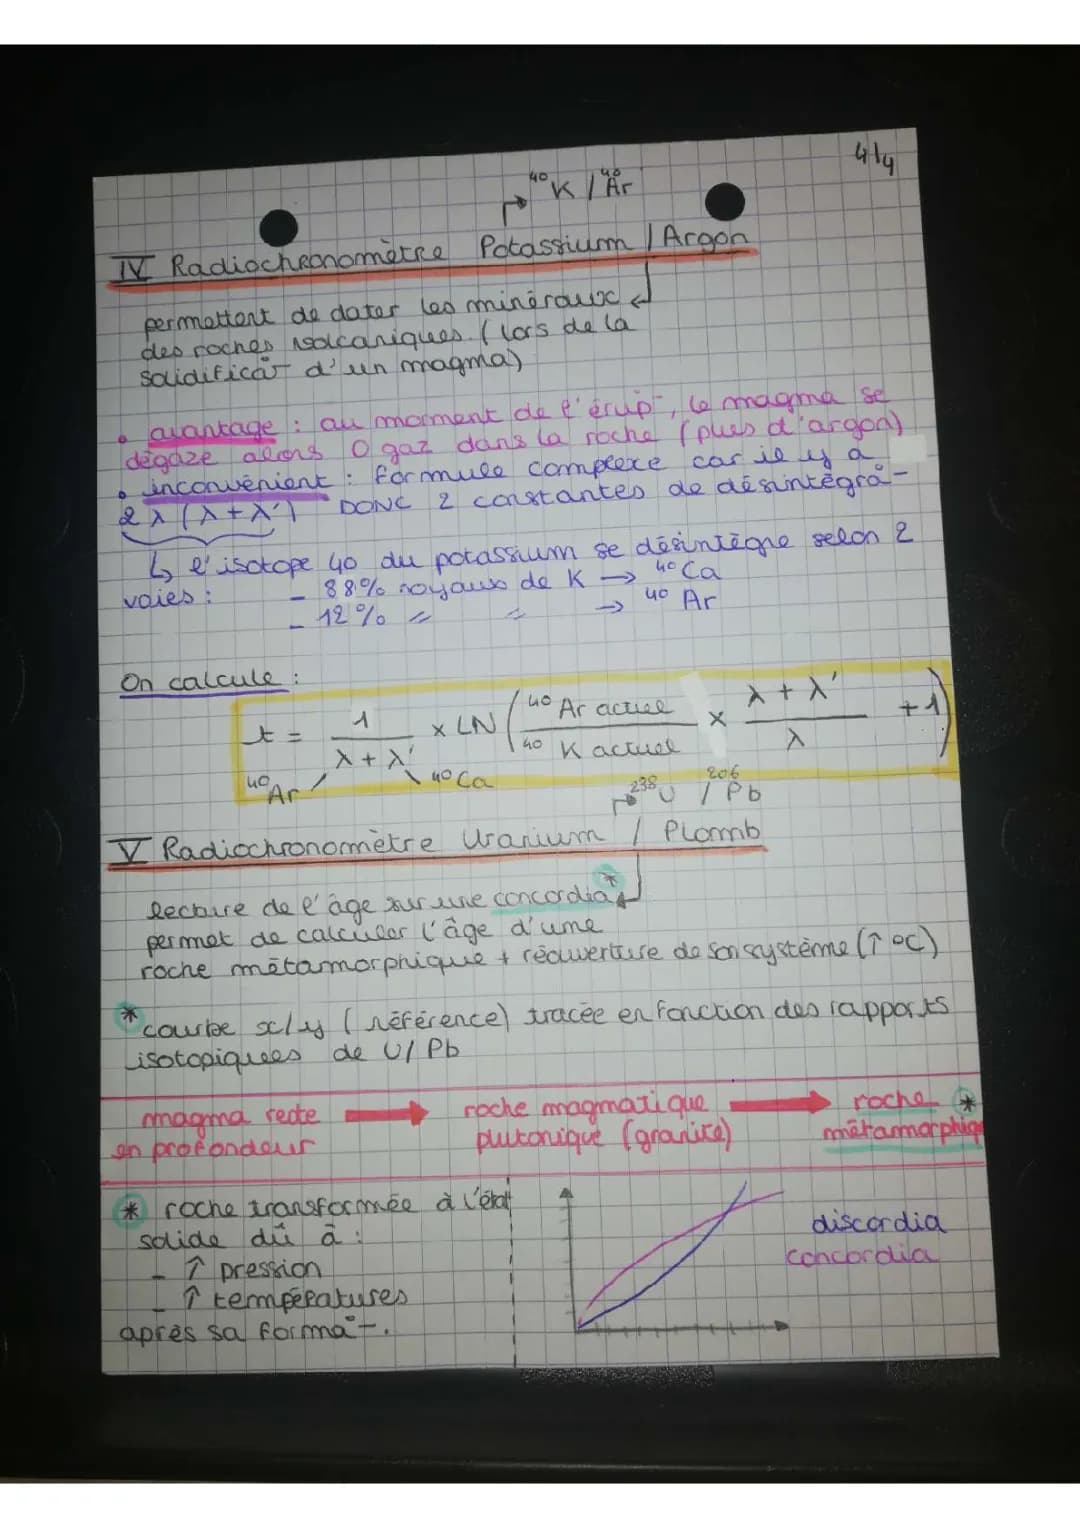 4/4
⁴⁰K / ⁴⁰Ar
IV Radiochronomètre Potassium / Argon
permettent de dater les minéraux
des roches volcaniques. (lors de la
solidificat° d'un magma)
• avantage : au moment de l'érup°, le magma se
dégaze alors 0 gaz dans la roche (plus d'argon)
• inconvénient : formule complexe car il y a
2 λ (λ+λ') DONC 2 constantes de désintégra°-
↳ l'isotope 40 du potassium se désintègre selon 2
voies : - 88% noyaux de K → ⁴⁰Ca
- 12% " " → ⁴⁰Ar
On calcule :
t = 1 / (λ + λ') x LN ( ⁴⁰Ar actuel / ⁴⁰K actuel x (λ + λ') / λ + 1 )
⁴⁰Ar ⁴⁰Ca
²³⁸U / ²⁰⁶Pb
V Radiochronomètre Uranium / Plomb
lecture de l'âge sur une concordia*
permet de calculer l'âge d'une
roche métamorphique + réouverture de son système (↑ °C)
* courbe x/y (référence) tracée en fonction des rapports
isotopiques de U/Pb
magma reste → roche magmatique → roche *
en profondeur plutonique (granite) métamorphique
* roche transformée à l'état
solide dû à :
- ↑ pression
- ↑ températures
après sa forma°-.
discordia
concordia